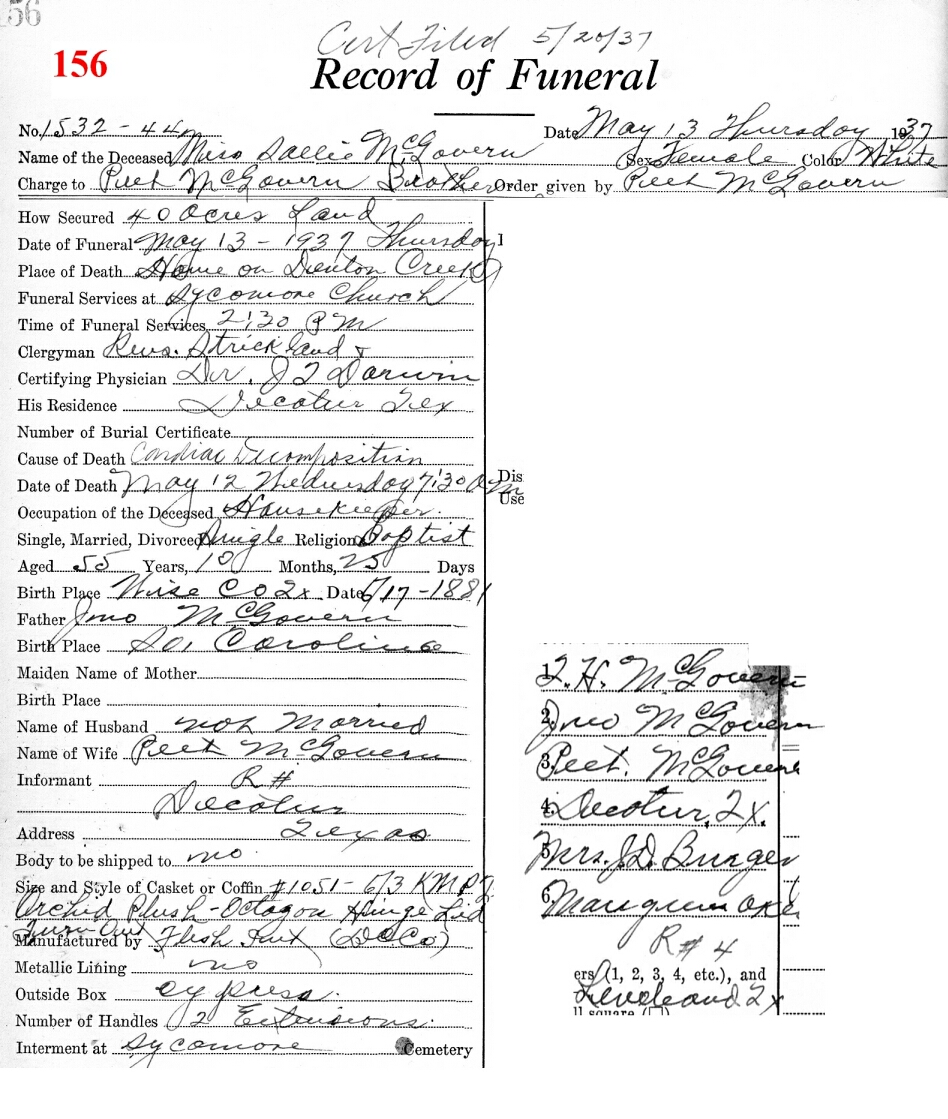 56
Cert Filed 5/20/37
156
Record of Funeral
No. 1532 - 44 Date May 13 Thursday 1937
Name of the Deceased Miss Sallie McGovern Sex Female Color White
Charge to Peet McGovern Brother Order given by Peet McGovern
How Secured 40 Acres Land
Date of Funeral May 13 - 1937 Thursday
Place of Death Home on Denton Creek
Funeral Services at Sycomore Church
Time of Funeral Services 2:30 P M
Clergyman Revs. Strickland &
Certifying Physician Dr. J T Darwin
His Residence Decatur Tex
Number of Burial Certificate
Cause of Death Cardiac Decomposition
Date of Death May 12 Wednesday 7:30 A M
Dis
Use
Occupation of the Deceased Housekeeper.
Single, Married, Divorced Single Religion Baptist
Aged 55 Years, 10 Months, 25 Days
Birth Place Wise Co Tx Date 6/17-1881
Father Jno McGovern
Birth Place So. Carolina
Maiden Name of Mother
Birth Place
Name of Husband not Married
Name of Wife Peet McGovern
Informant R#
Decatur
Address Texas
Body to be shipped to no
Size and Style of Casket or Coffin #1051 - 6/3 K M P
Orchid Plush - Octagon Hinge Lid
Manufactured by Flesh Int (D C Co)
Metallic Lining no
Outside Box cypress.
Number of Handles 2 Extensions.
Interment at Sycomore Cemetery
1. T. H. McGovern
2. Jno McGovern
3. Peet. McGovern
4. Decatur, Tx.
5. Mrs. J.D. Burger
6. Mangum Okl
R# 4
ers (1, 2, 3, 4, etc.), and
Leveland Tx
ll square